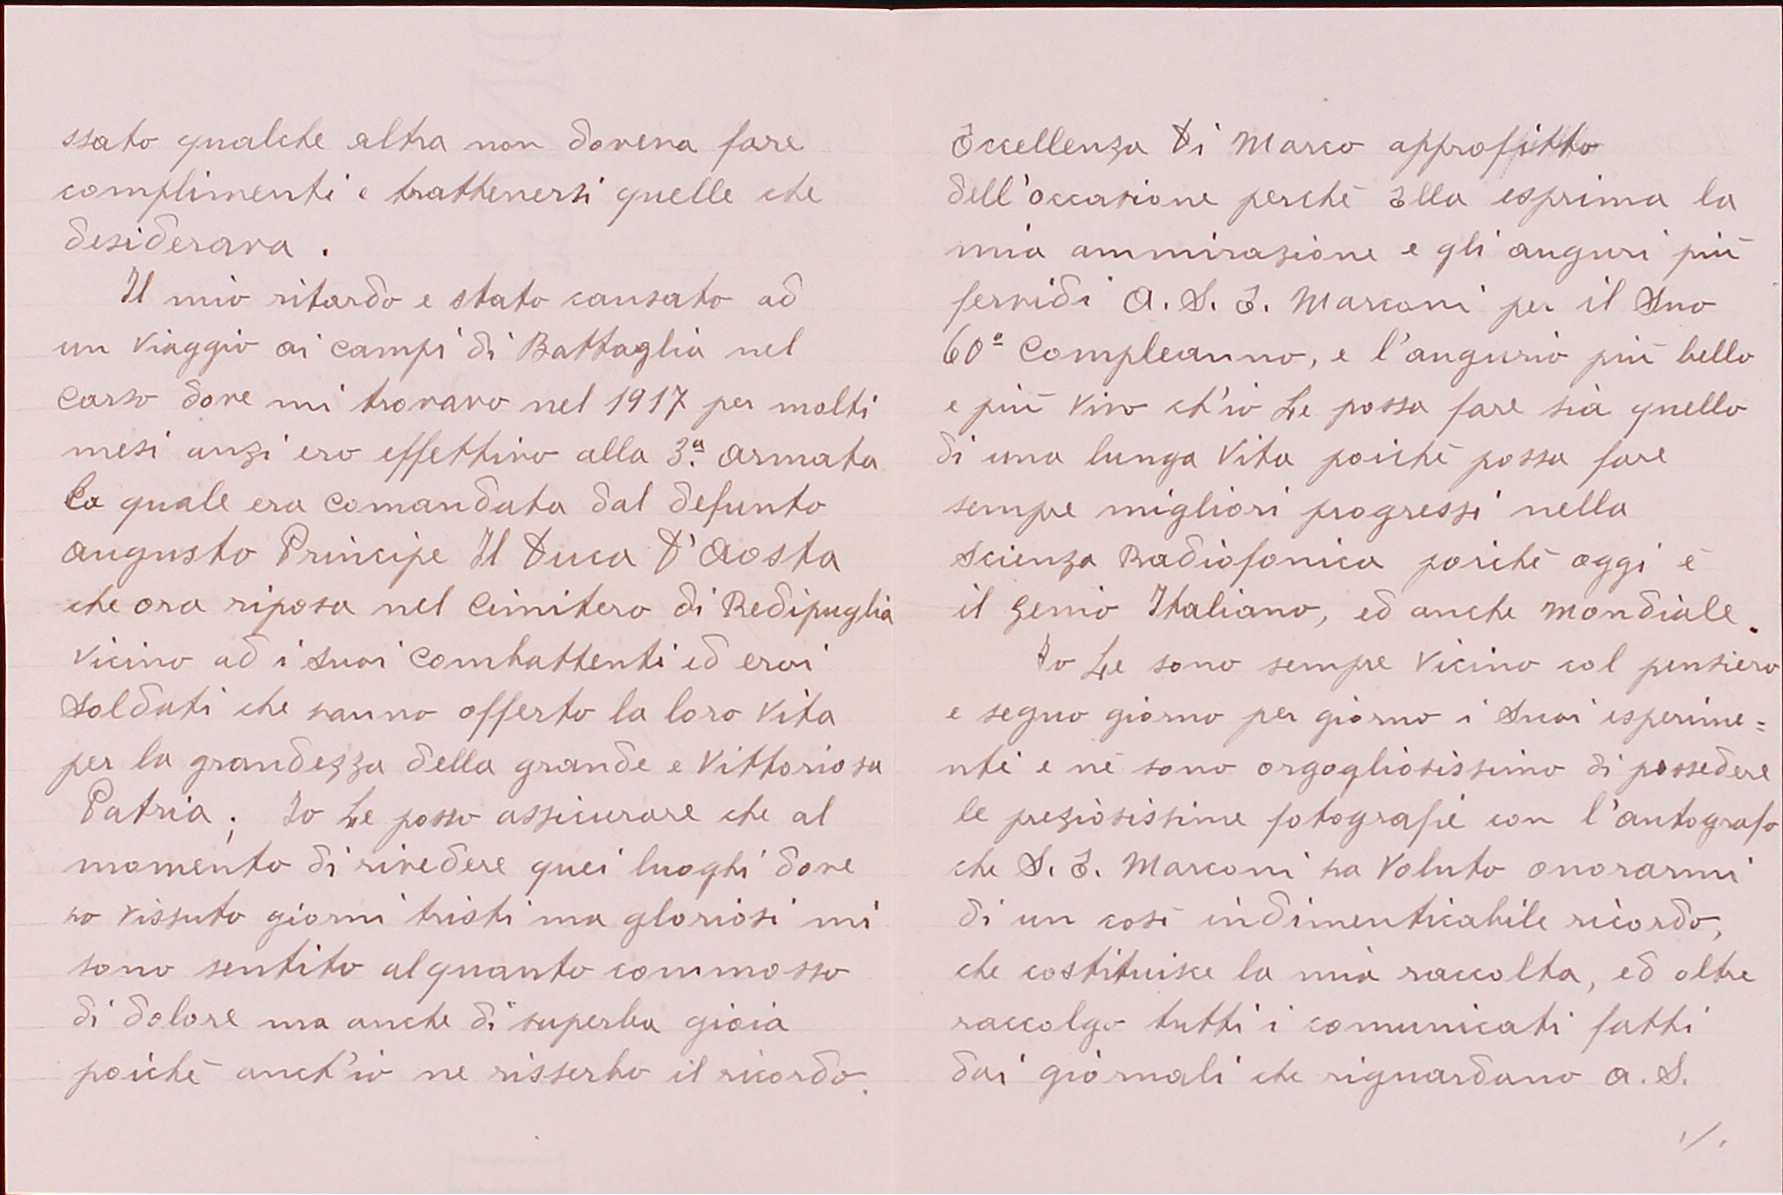 ssato qualche altra non doveva fare
complimenti e trattenersi quelle che
desiderava.
Il mio ritardo e stato causato ad
un viaggio ai campi di Battaglia nel
Carso dove mi trovavo nel 1917 per molti
mesi anzi ero effettivo alla 3.ª Armata
la quale era Comandata dal defunto
Augusto Principe Il Duca D'Aosta
che ora riposa nel Cimitero di Redipuglia
vicino ad i suoi Combattenti ed eroi
Soldati che hanno offerto la loro vita
per la grandezza della grande e Vittoriosa
Patria; Io Le posso assicurare che al
momento di rivedere quei luoghi dove
ho vissuto giorni tristi ma gloriosi mi
sono sentito alquanto commosso
di dolore ma anche di superba gioia
poichè anch'io ne risserbo il ricordo.
Eccellenza Di Marco approfitto
dell'occasione perchè Ella esprima la
mia ammirazione e gli auguri più
fervidi A. S. E. Marconi per il Suo
60º Compleanno, e l'augurio più bello
e più vivo ch'io Le possa fare sia quello
di una lunga vita poichè possa fare
sempre migliori progressi nella
Scienza Radiofonica poichè oggi è
il genio Italiano, ed anche Mondiale.
Io Le sono sempre vicino col pensiero
e seguo giorno per giorno i Suoi esperime=
nti e nè sono orgogliosissimo di possedere
le preziosissime fotografie con l'autografo
che S. E. Marconi ha voluto onorarmi
di un così indimenticabile ricordo,
che costituisce la mia raccolta, ed oltre
raccolgo tutti i comunicati fatti
dai giornali che riguardano A. S.
./.